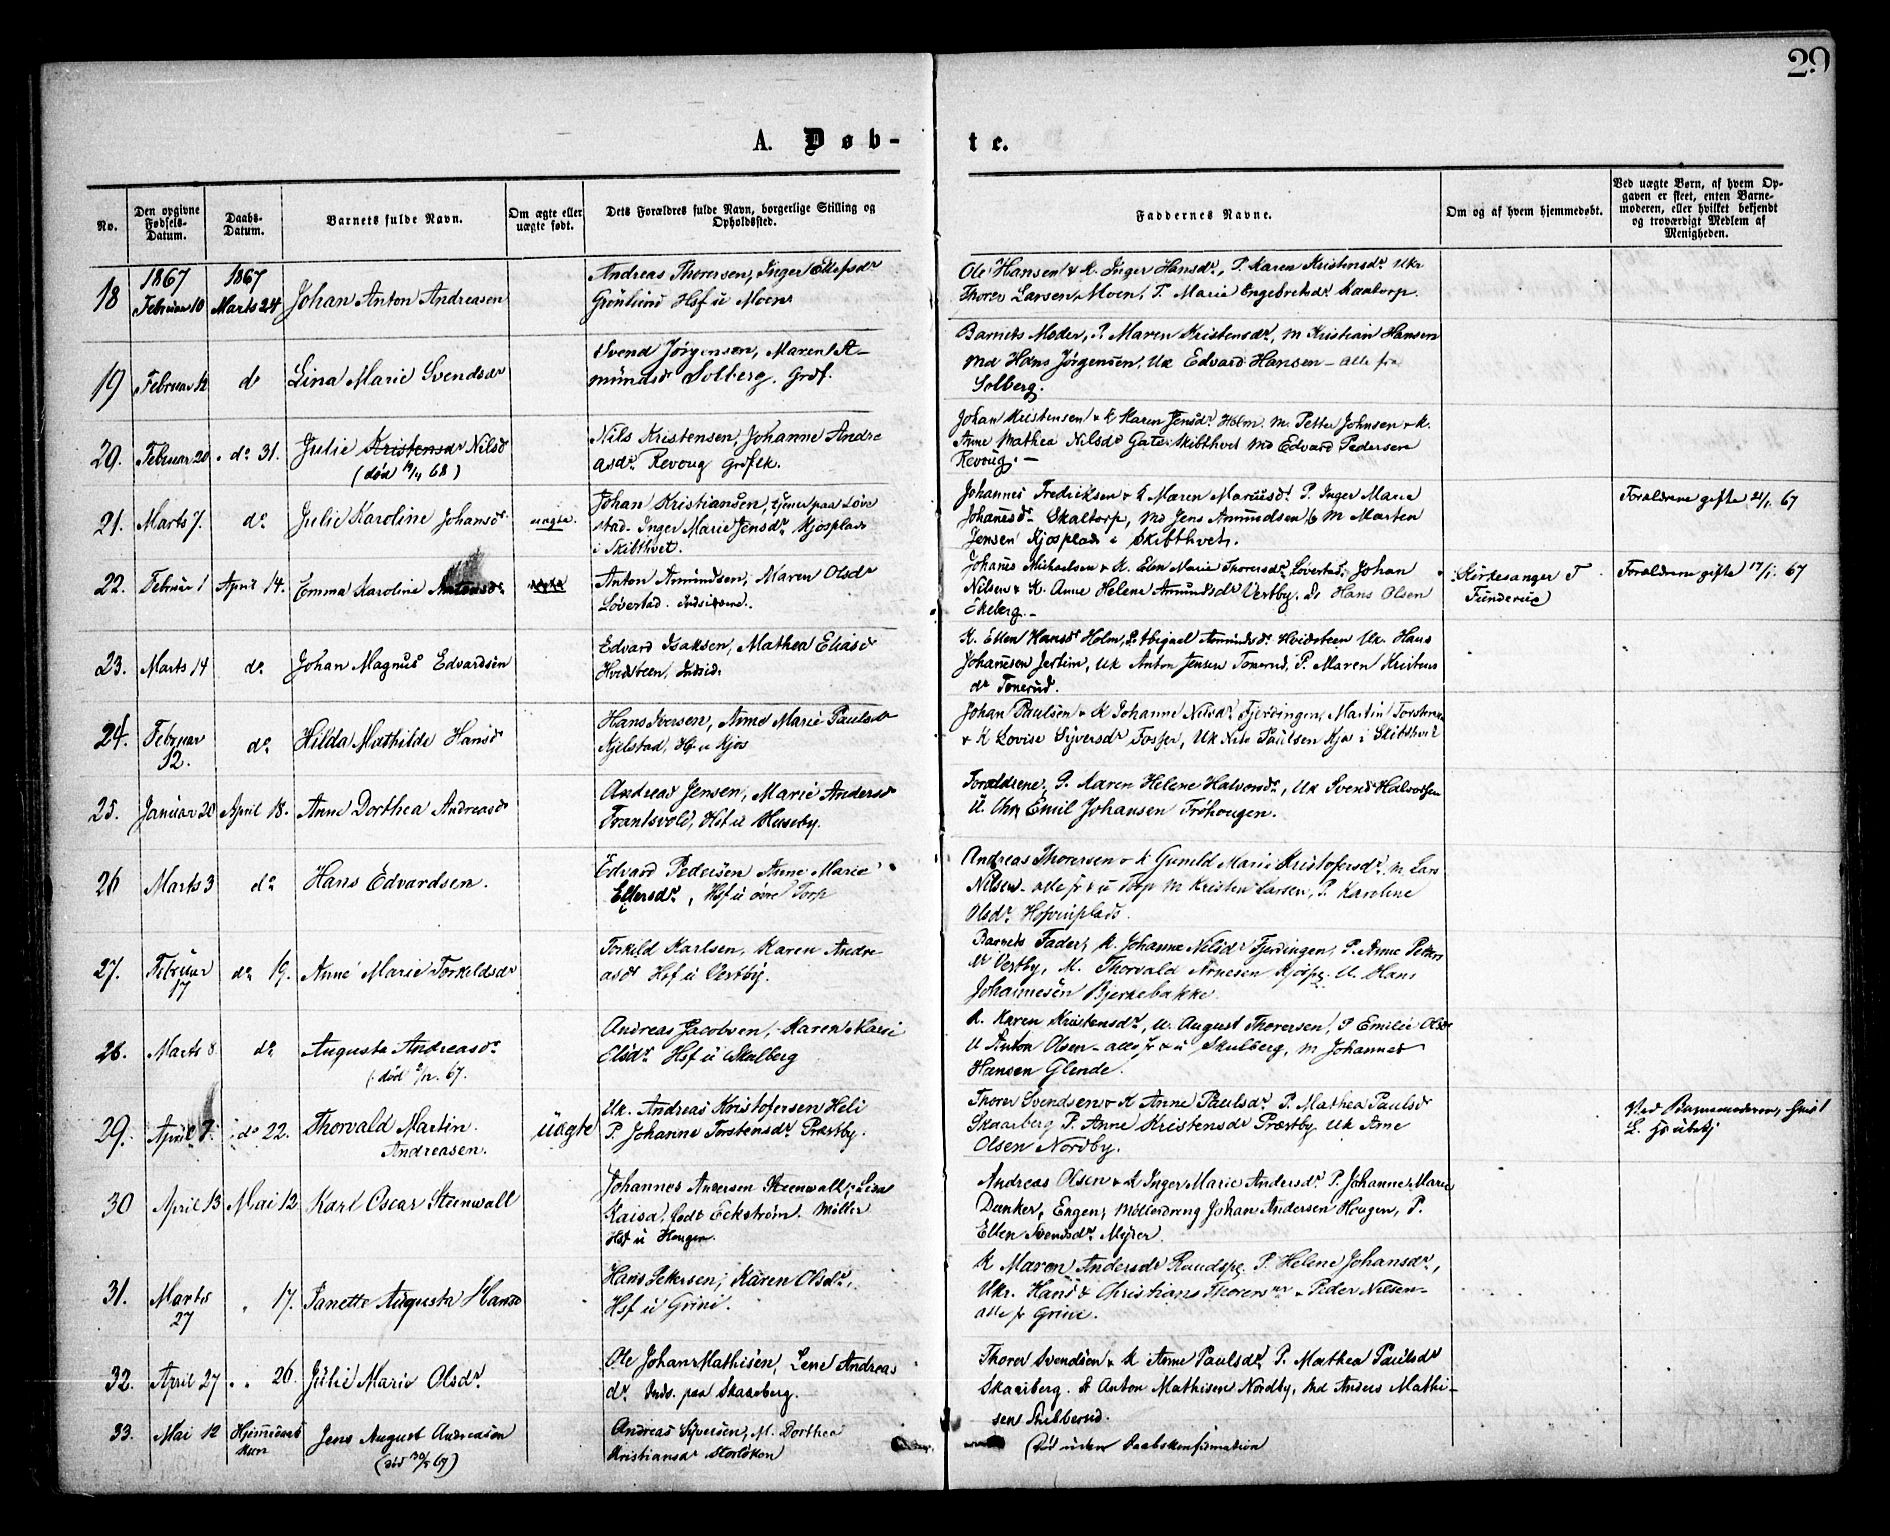 29
A. Døb-
te.
No.
Den opgivne Fødsels-Datum.
Daabs-Datum.
Barnets fulde Navn.
Om ægte eller uægte født.
Dets Forældres fulde Navn, borgerlige Stilling og Opholdssted.
Faddernes Navne.
Om og af hvem hjemmedøbt.
Ved uægte Børn, af hvem Opgaven er skeet, enten Barnemoderen, eller hvilket bekjendt og troværdigt Medlem af Menigheden.
1867
1867
18
Februar 10
Marts 24
Johan Anton Andreasen
Andreas Thorersen, Inger
Grönlund Hsf u Moen
Ole Hansen & K. Inger Hansdr, P. Karen Kristensdr Ukr
Thorer Larsen Moen, P. Marie Engebretsdr Kaatorp.
19
Februar 12
do
Lina Marie Svendsdr
Svend Jørgensen, Maren A-
mundsdr Solberg. Grdf.
Barnets Moder, P. Maren Kristensdr, M Kristian Hansen
Md Hans Jørgensen, Uk Edvard Hansen - alle fra
Solberg.
20.
Februar 20
do 31.
Julie Kristensdr Nilsd
(død 19/4 68)
Nils Kristensen, Johanne Andre
asdr. Revoug
Johan Kristensen & K Karen Jensdr Holm. M. Petter Johnsen & K.
Anne Mathea Nilsdr Gaten Skibthvet Md Edvard Pedersen
Revoug. -
21.
Marts 7.
do
Julie Karoline Johansdr
uægte.
Johan Kristiansen, tjener paa Løve
stad. Inger Marie Jensdr. Kjosplads
i Skibthvet.
Johannes Fredriksen & K Maren Mariusdr P. Inger Marie
Johanesdr Skaltorp, Md Jens Amundsen & M Marten
Jensen Kjosplads i Skibthvet.
Forældrene gifte 21/1. 67
22.
Februar 1
April 14.
Emma Karoline Antonsdr
Anton Amundsen, Maren Olsdr
Løvestad. indsidsme.
Johanes Michaelsen & K. Elen Marie Thorersdr Løvestad, Johan
Nilsen & K. Anne Helene Amundsdr Vestby. Hans Olsen
Ekeberg. -
Kirkesanger T
Tunderux
Forældrene gifte 17/1. 67
23.
Marts 14
do
Johan Magnus Edvardsen
Edvard Isaksen, Mathea Eliasd
Hvidsteen, Indsid.
K. Ellen Hansdr Holm, Abigael Amundsdr Hvidsteen Uk. Hans
Johanesen Jertim, Uk Anton Jensen Tonerud, P. Maren Kristens
dr Tonerud.
24.
Februar
12.
do
Hilda Mathilde Hansd
Hans Iversen, Anne Marie Paulsdr
Kjelstad, Hf u Kjos
Johan Paulsen & K Johanne Nilsdr Fjerdingen, Martin Torstensen
& K Lovise Syversdr Tosper, Uk Nils Paulsen Kjos i Skibthvet
25.
Januar 20
April 18.
Anne Dorthea Andreasd
Andreas Jensen, Marie Andersd
Trantsvold, Hsf u Huseby.
Forældrene, P. Karen Helene Halvorsdr, Uk Svend Halvorsen
U. Chr Emil Johansen Frohougen.
26
Marts 3
do
Hans Edvardsen.
Edvard Pedersen Anne Marie
Ellersdr, Hsf u øvre Torp
Andreas Thorersen & K Gunild Marie Kristofersdr, M Lars
Nilsen - alle fr & u Torp M Kristen Larsen, P. Karoline
Olsdr Hofvinplads.
27.
Februar
17
do 19.
Anne Marie Torkeldsdr
Torkeld Karlsen, Karen Andre
asdr Hsf u Vestby.
Barnets Fader, K. Johanne Nilsdr Fjerdingen, P. Anne Peters
dr Vestby, M. Thorvald Arnesen Kjøspe. U. Hans
Johannesen Bjerkebakke.
28.
Marts 8
do
Augusta Andreasdr
(død 9/12. 67.
Andreas Jacobsen, Karen Marie
Olsdr Hsf u Skulberg
K. Karen Kristensdr, U. August Thorersen, P Emilie Olsdr
U Anton Olsen - alle fr & u Skulberg, M Johannes
Hansen Glende.
29.
April 7.
do 22.
Thorvald Martin
Andreasen.
uægte
Uk. Andreas Kristofersen Heli
P. Johanne Torstensdr Præstby.
Thorer Svendsen & K Anne Paulsdr P. Mathea Paulsd
Skaarberg P. Anne Kristensdr Præstby Uk Arne
Olsen Nordby.
Ved Barnemoderen,
30
April 13
Mai 12
Karl Oscar Steenwall
Johannes Andersen Steenwall, Lisa
Kaisa, født Eckstrøm. Møller
Hsf u Hougen.
Andreas Olsen & K Inger Marie Andersdr P. Johanne Marie
Dunker, Engen, Møllerdreng Johan Andersen Hougen, P.
Ellen Svendsdr Myrer.
31.
Marts
27
" 17.
Janette Augusta Hansd
Hans Pettersen, Karen Olsdr,
Hsf u Grini.
K Maren Andersdr Rundspe, P. Helene Johansdr,
Ukr. Hans & Christians Thorersønner & Peder Nilsen -
alle fr Grini.
32.
April 27
" " 26.
Julie Marie Olsdr.
Ole Johan Mathisen, Lene Andreas
dr Inds. paa Skaarberg.
Thorer Svendsen & K Anne Paulsdr, P. Mathea Paulsdr
Skaarberg. & Anton Mathisen Nordby, Md Anders Mathi-
sen Stubberud.
33.
Mai 12
Hjemmedøbt
kun
Jens August Andreasen
(død 30/5 67)
Andreas Syversen, M. Dorthea
Kristiansdr Storløkon
(Død uden Daabskonfirmation